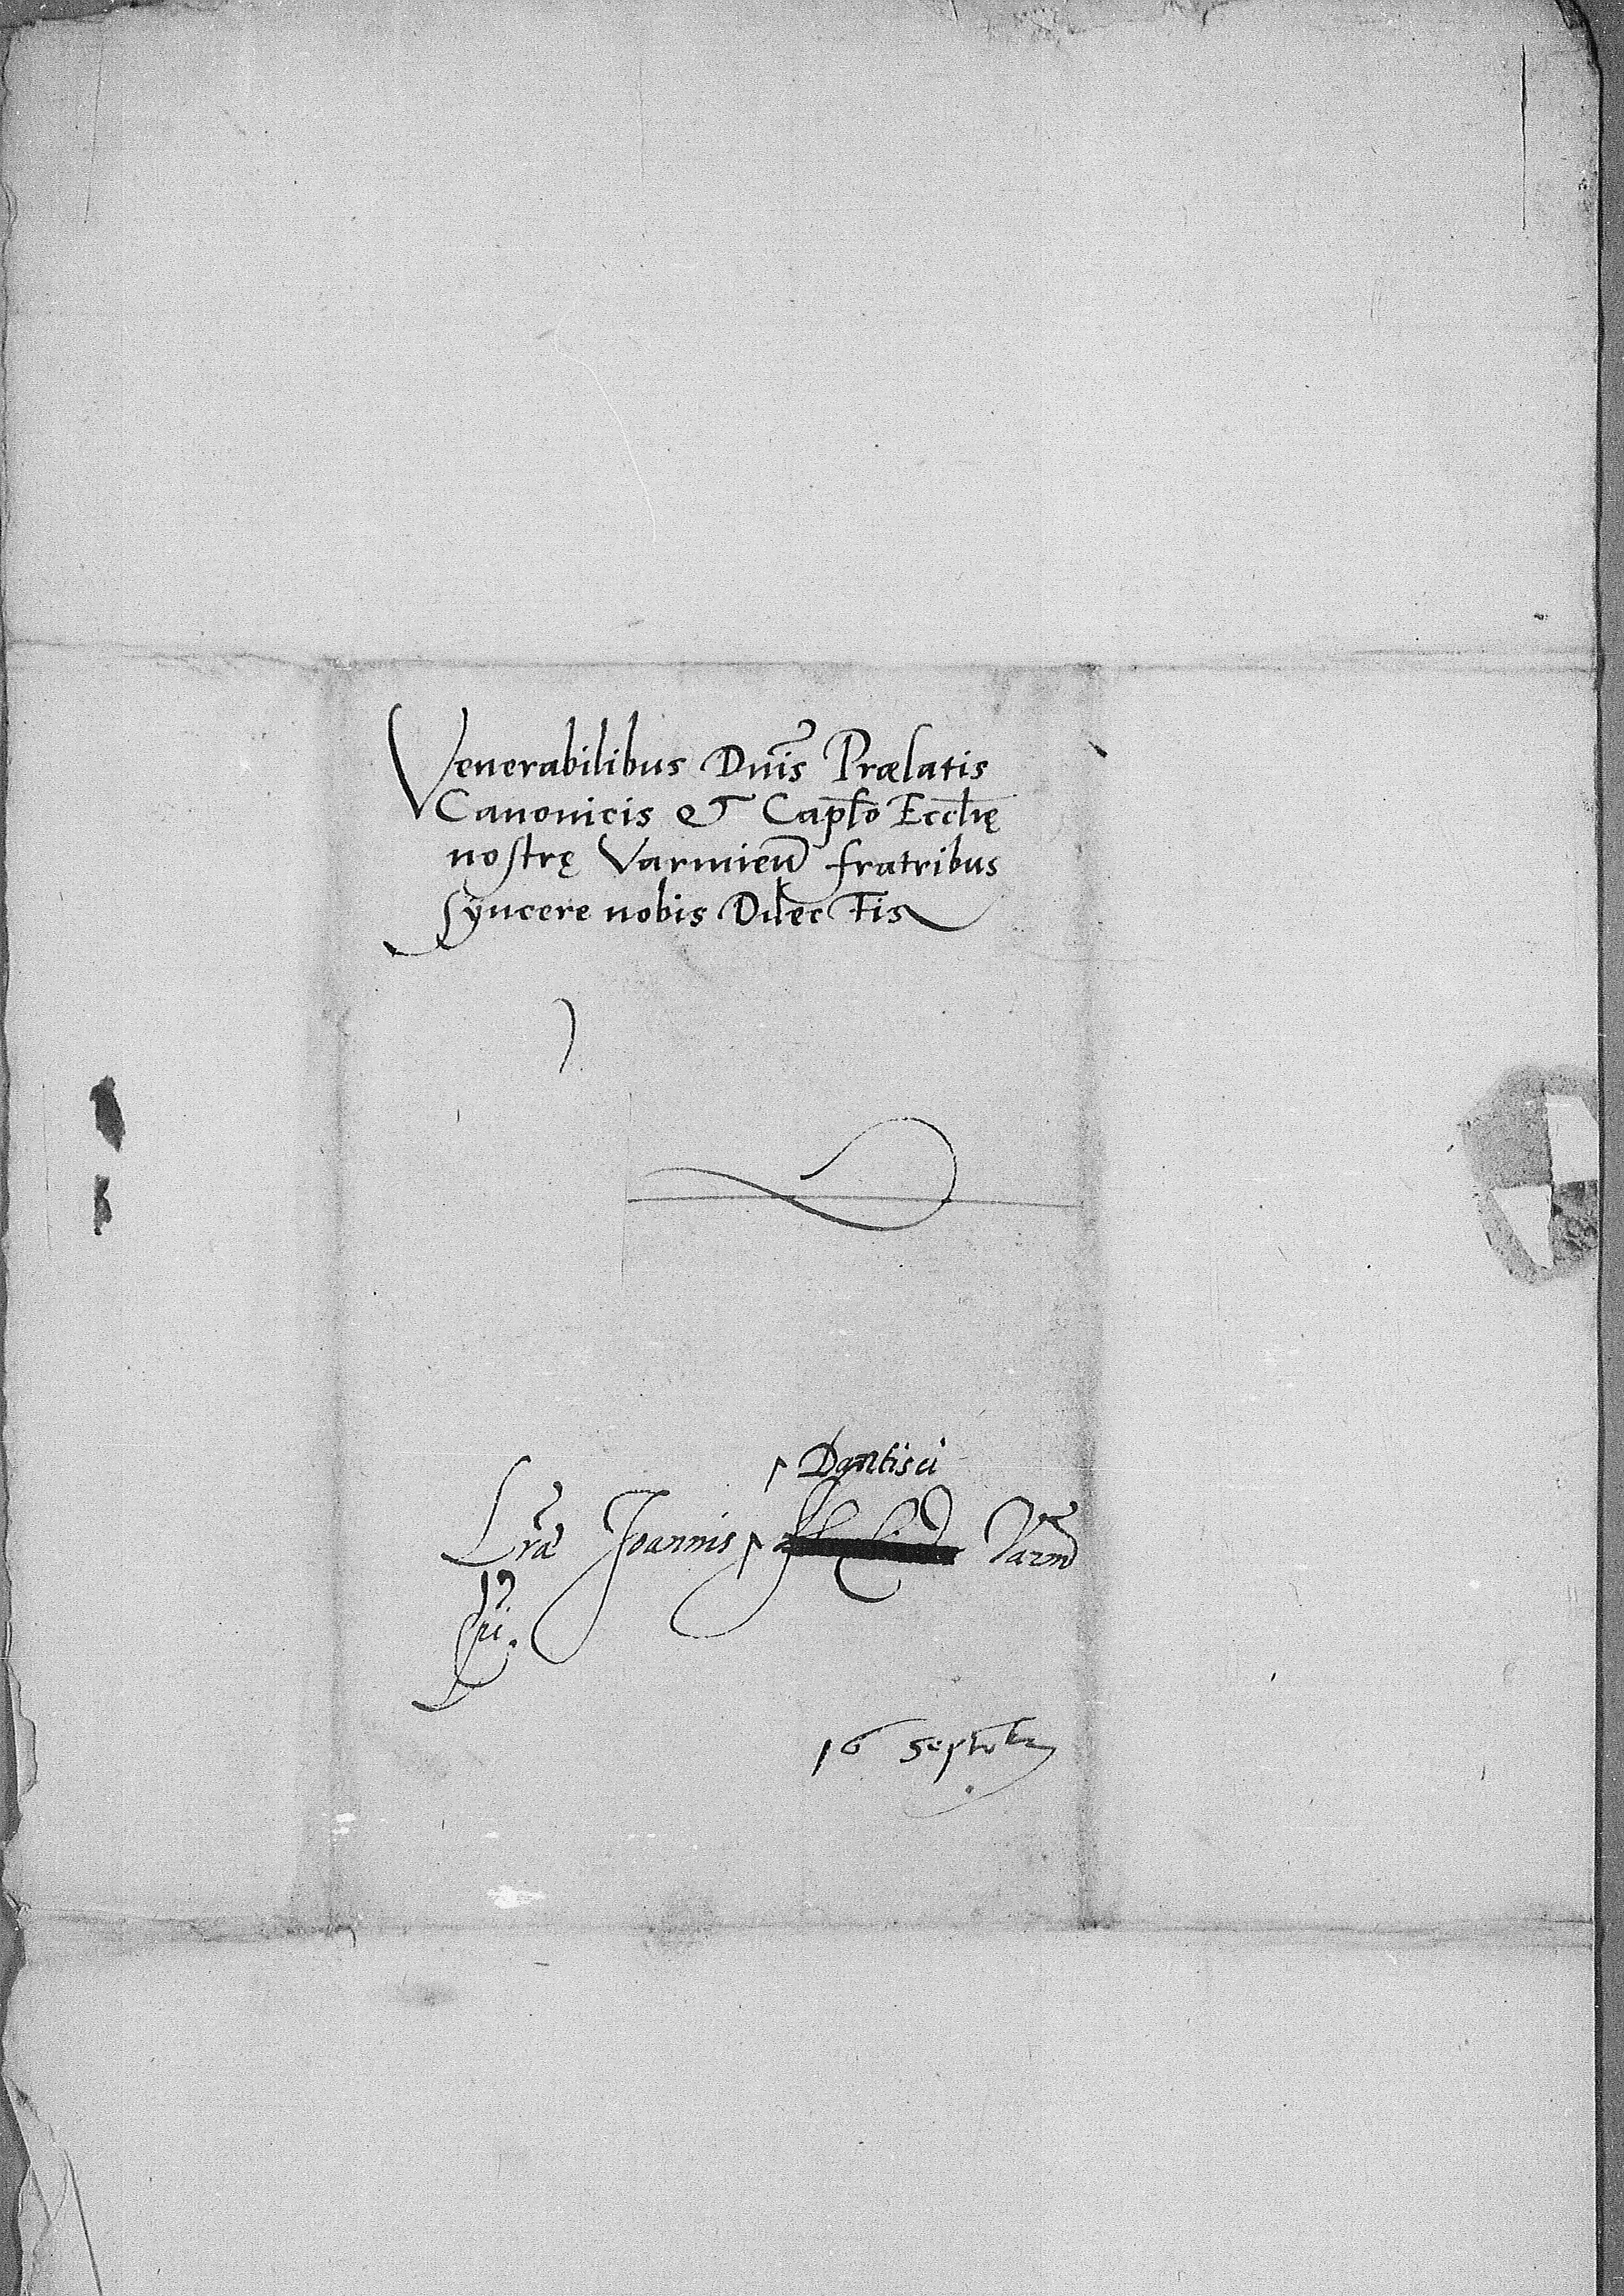 Venerabilibus Dnis Prælatis
Canonicis et Capło Eccłię
nostrę Varmien̄ fratribus
syncere nobis Dilectis
Dantisci
Lr̄æ Joannis Varm̄
16 Septēbr̄